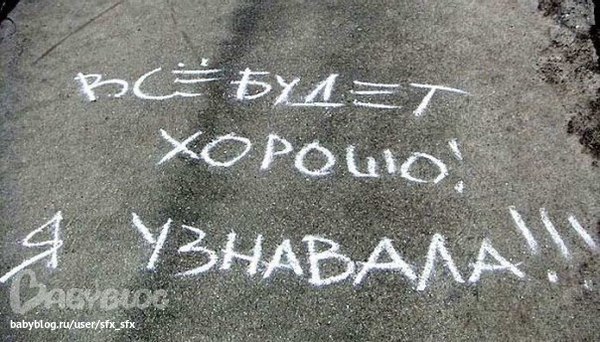 ВСЁ БУДЕТ
ХОРОШО!
Я УЗНАВАЛА!!!
BABYBLOG
babyblog.ru/user/sfx_sfx